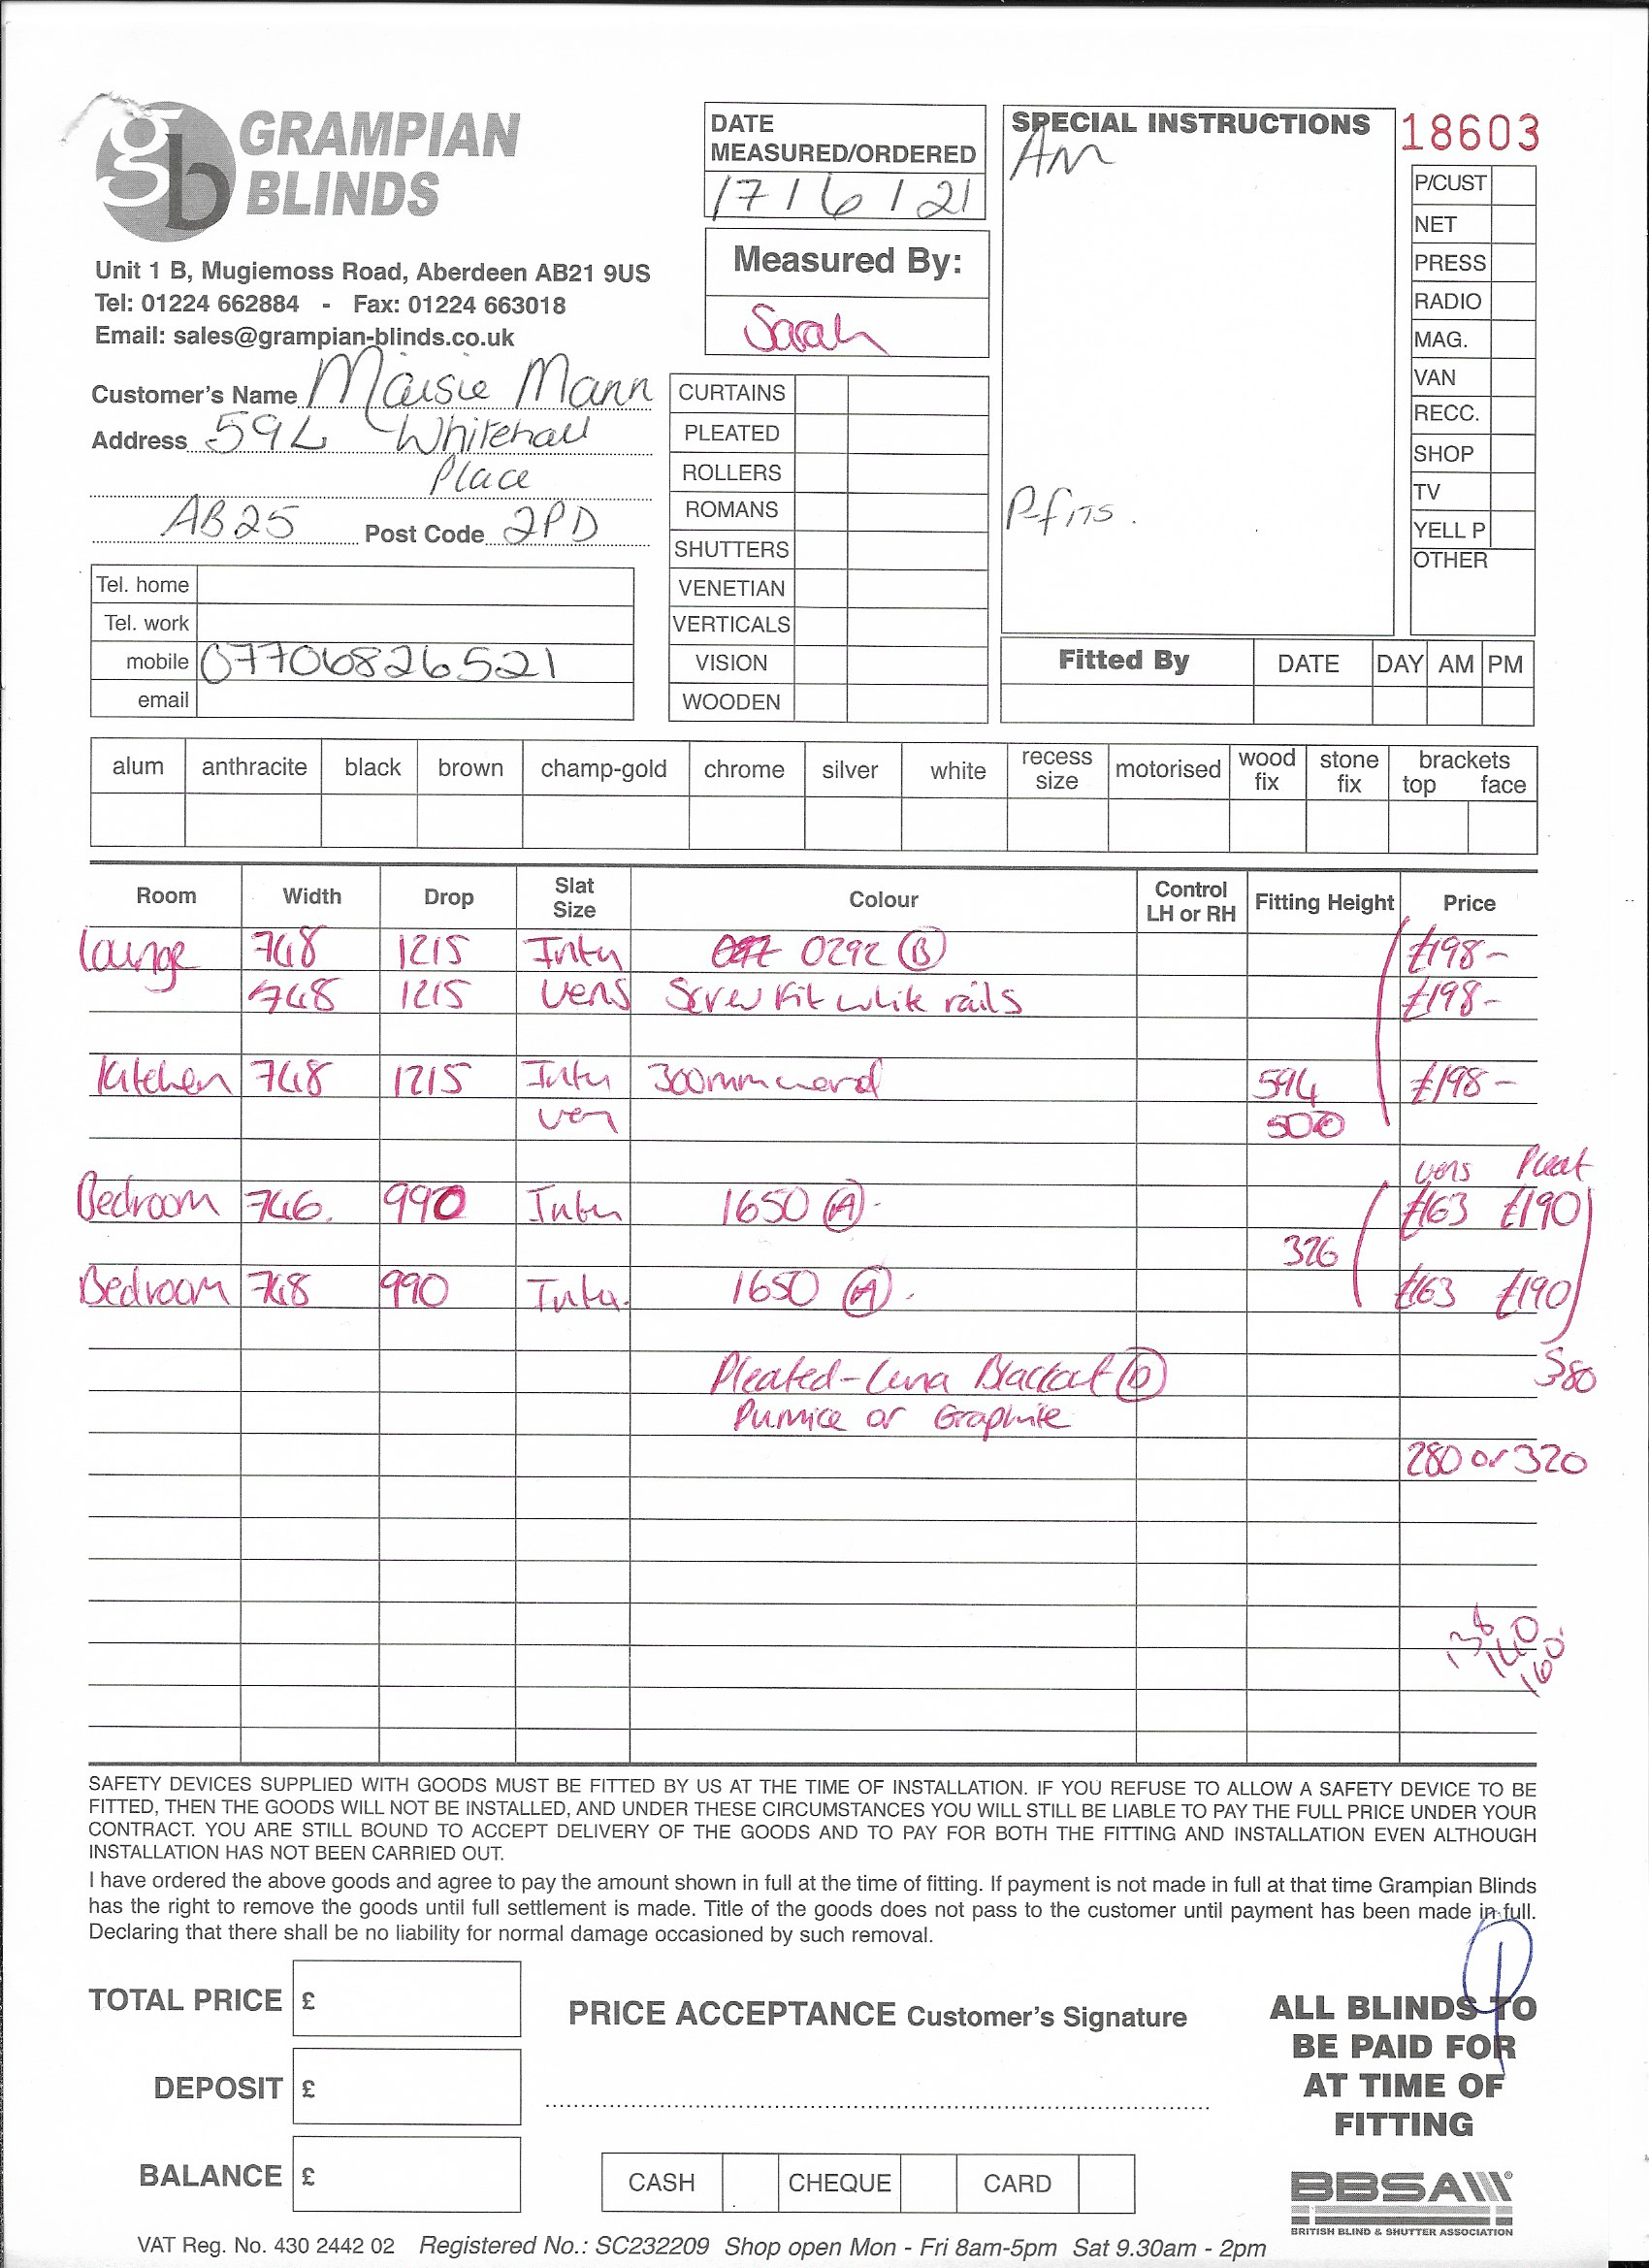 gb GRAMPIAN
BLINDS
Unit 1 B, Mugiemoss Road, Aberdeen AB21 9US
Tel: 01224 662884 - Fax: 01224 663018
Email: sales@grampian-blinds.co.uk
Customer's Name Maisie Mann
Address 59L Whitehall
Place
AB25 Post Code 2PD
Tel. home
Tel. work
mobile 07706826521
email
DATE
MEASURED/ORDERED
17/6/21
Measured By:
Sarah
CURTAINS
PLEATED
ROLLERS
ROMANS
SHUTTERS
VENETIAN
VERTICALS
VISION
WOODEN
SPECIAL INSTRUCTIONS
Am
18603
P/CUST
NET
PRESS
RADIO
MAG.
VAN
RECC.
SHOP
TV
YELL P
OTHER
Fitted By DATE DAY AM PM
alum anthracite black brown champ-gold chrome silver white recess size motorised wood fix stone fix brackets top face
Room Width Drop Slat Size Colour Control LH or RH Fitting Height Price
Lounge 748 1215 Intu 0292 (B) £198-
748 1215 Vens Screw Fit white rails £198-
Kitchen 748 1215 Intu 300mm wand 594 £198-
Ven 500
Vens Pleat
Bedroom 746. 990 Intu 1650 (A). £163 £190
326
Bedroom 748 990 Intu. 1650 (A). £163 £190
Pleated-Luna Blackout (D) 380
Pumice or Graphite
280 or 320
138
140
160.
SAFETY DEVICES SUPPLIED WITH GOODS MUST BE FITTED BY US AT THE TIME OF INSTALLATION. IF YOU REFUSE TO ALLOW A SAFETY DEVICE TO BE
FITTED, THEN THE GOODS WILL NOT BE INSTALLED, AND UNDER THESE CIRCUMSTANCES YOU WILL STILL BE LIABLE TO PAY THE FULL PRICE UNDER YOUR
CONTRACT. YOU ARE STILL BOUND TO ACCEPT DELIVERY OF THE GOODS AND TO PAY FOR BOTH THE FITTING AND INSTALLATION EVEN ALTHOUGH
INSTALLATION HAS NOT BEEN CARRIED OUT.
I have ordered the above goods and agree to pay the amount shown in full at the time of fitting. If payment is not made in full at that time Grampian Blinds
has the right to remove the goods until full settlement is made. Title of the goods does not pass to the customer until payment has been made in full.
Declaring that there shall be no liability for normal damage occasioned by such removal.
TOTAL PRICE £
DEPOSIT £
BALANCE £
PRICE ACCEPTANCE Customer's Signature
CASH CHEQUE CARD
ALL BLINDS TO
BE PAID FOR
AT TIME OF
FITTING
BBSA
BRITISH BLIND & SHUTTER ASSOCIATION
VAT Reg. No. 430 2442 02 Registered No.: SC232209 Shop open Mon - Fri 8am-5pm Sat 9.30am - 2pm